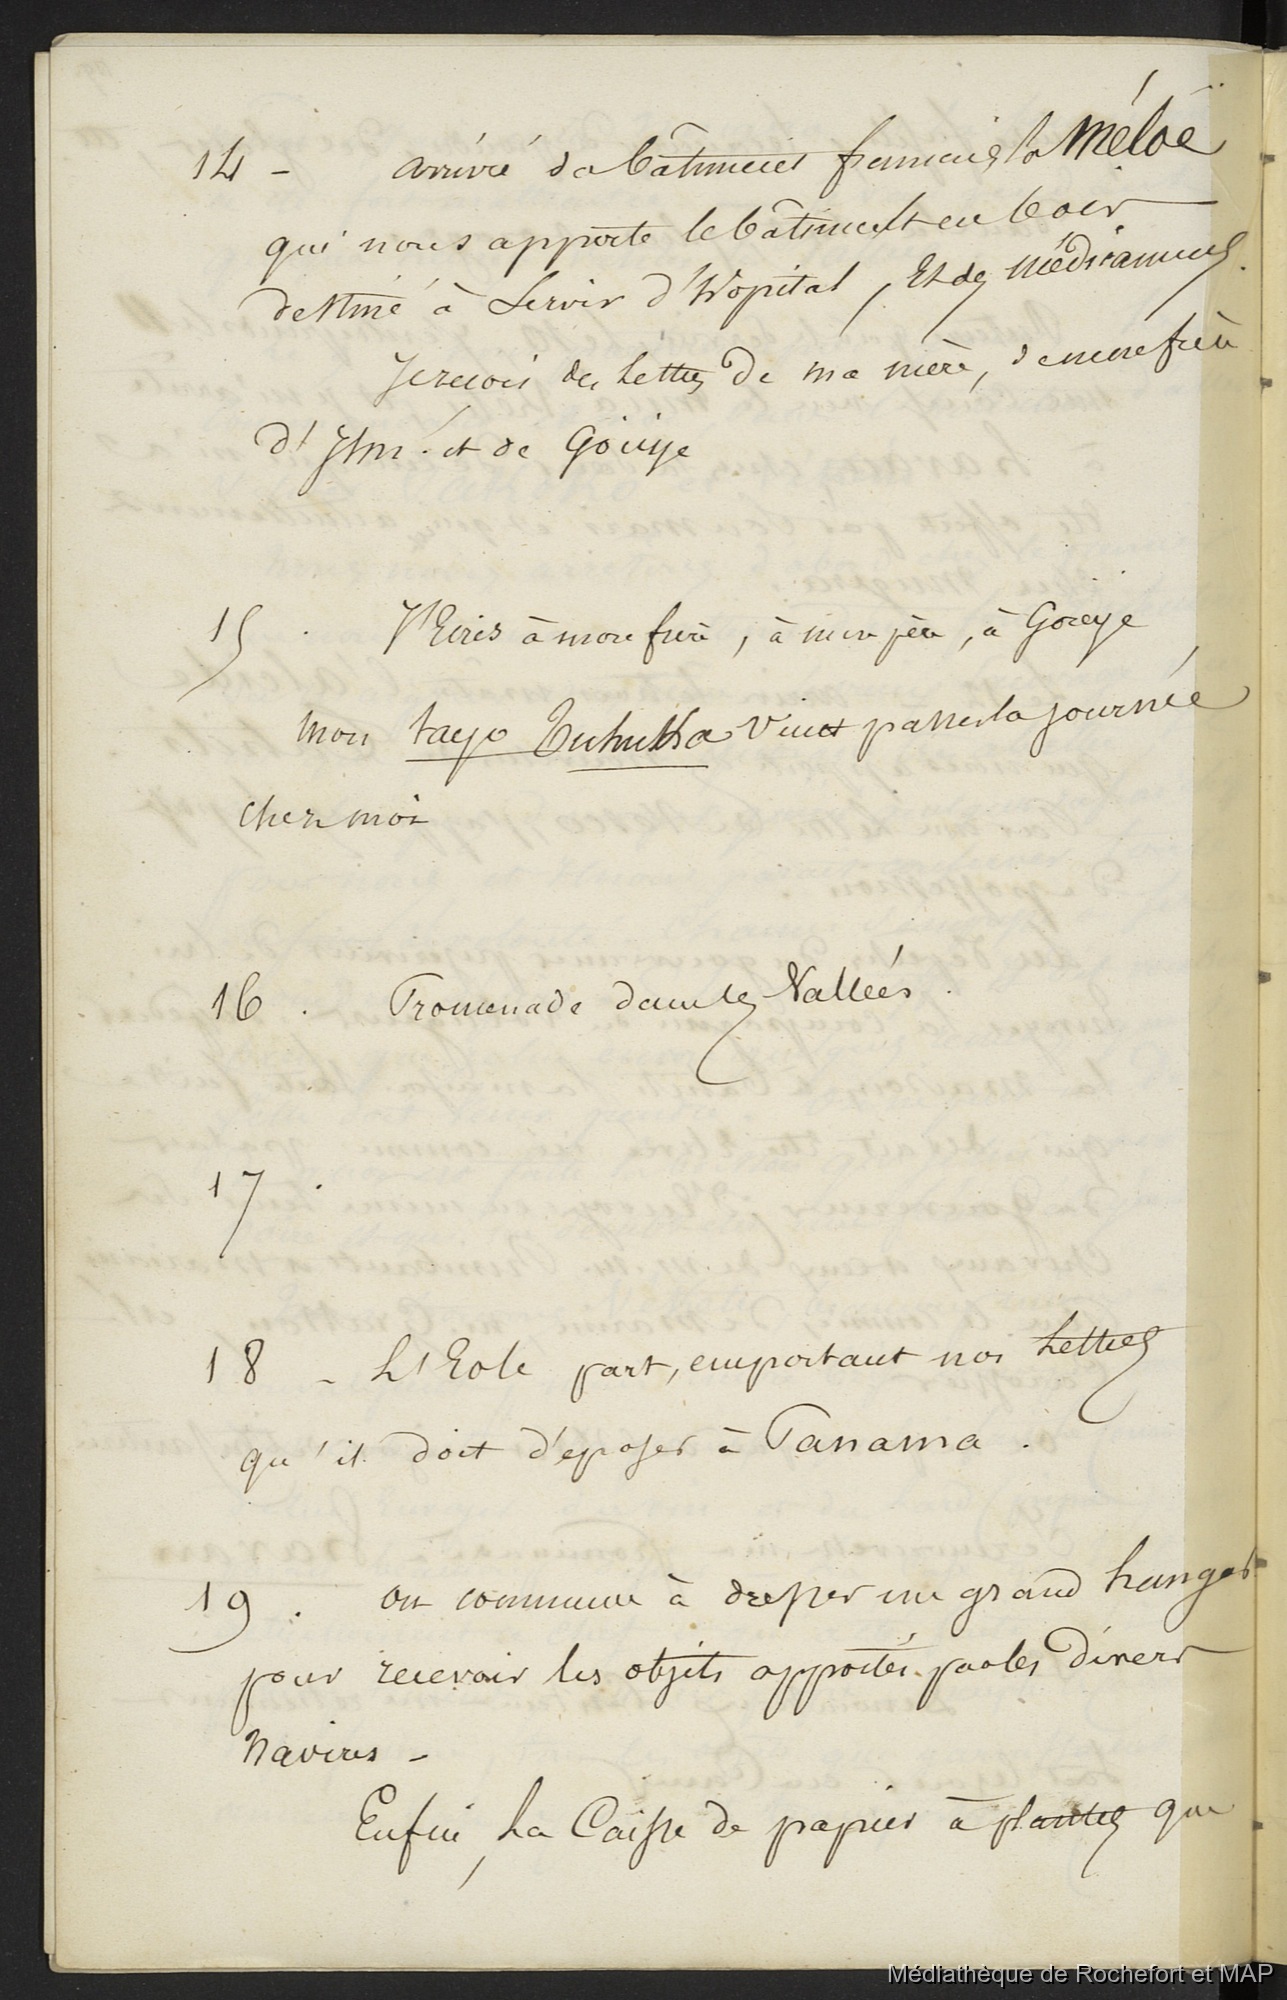 14 - arrivée du bâtiment français la Méloé
qui nous apporte le bâtiment en bois
destiné à servir d'hopital, et des médicaments.
Je recois des lettres de ma mère, de mon frère
d' et de Gouye
15 . J'écris à mon frère, à mon père, à Gouye
mon tayo vient passer la journée
chez moi
16 . Promenade dans les Vallées .
17 .
18 - L'Eole part, emportant nos lettres
qu'il doit déposer à Panama .
19 . on commence à dresser un grand hangar
pour recevoir les objets apportés par les divers
navires -
Enfin, la Caisse de papier à plantes que
Médiathèque de Rochefort et MAP